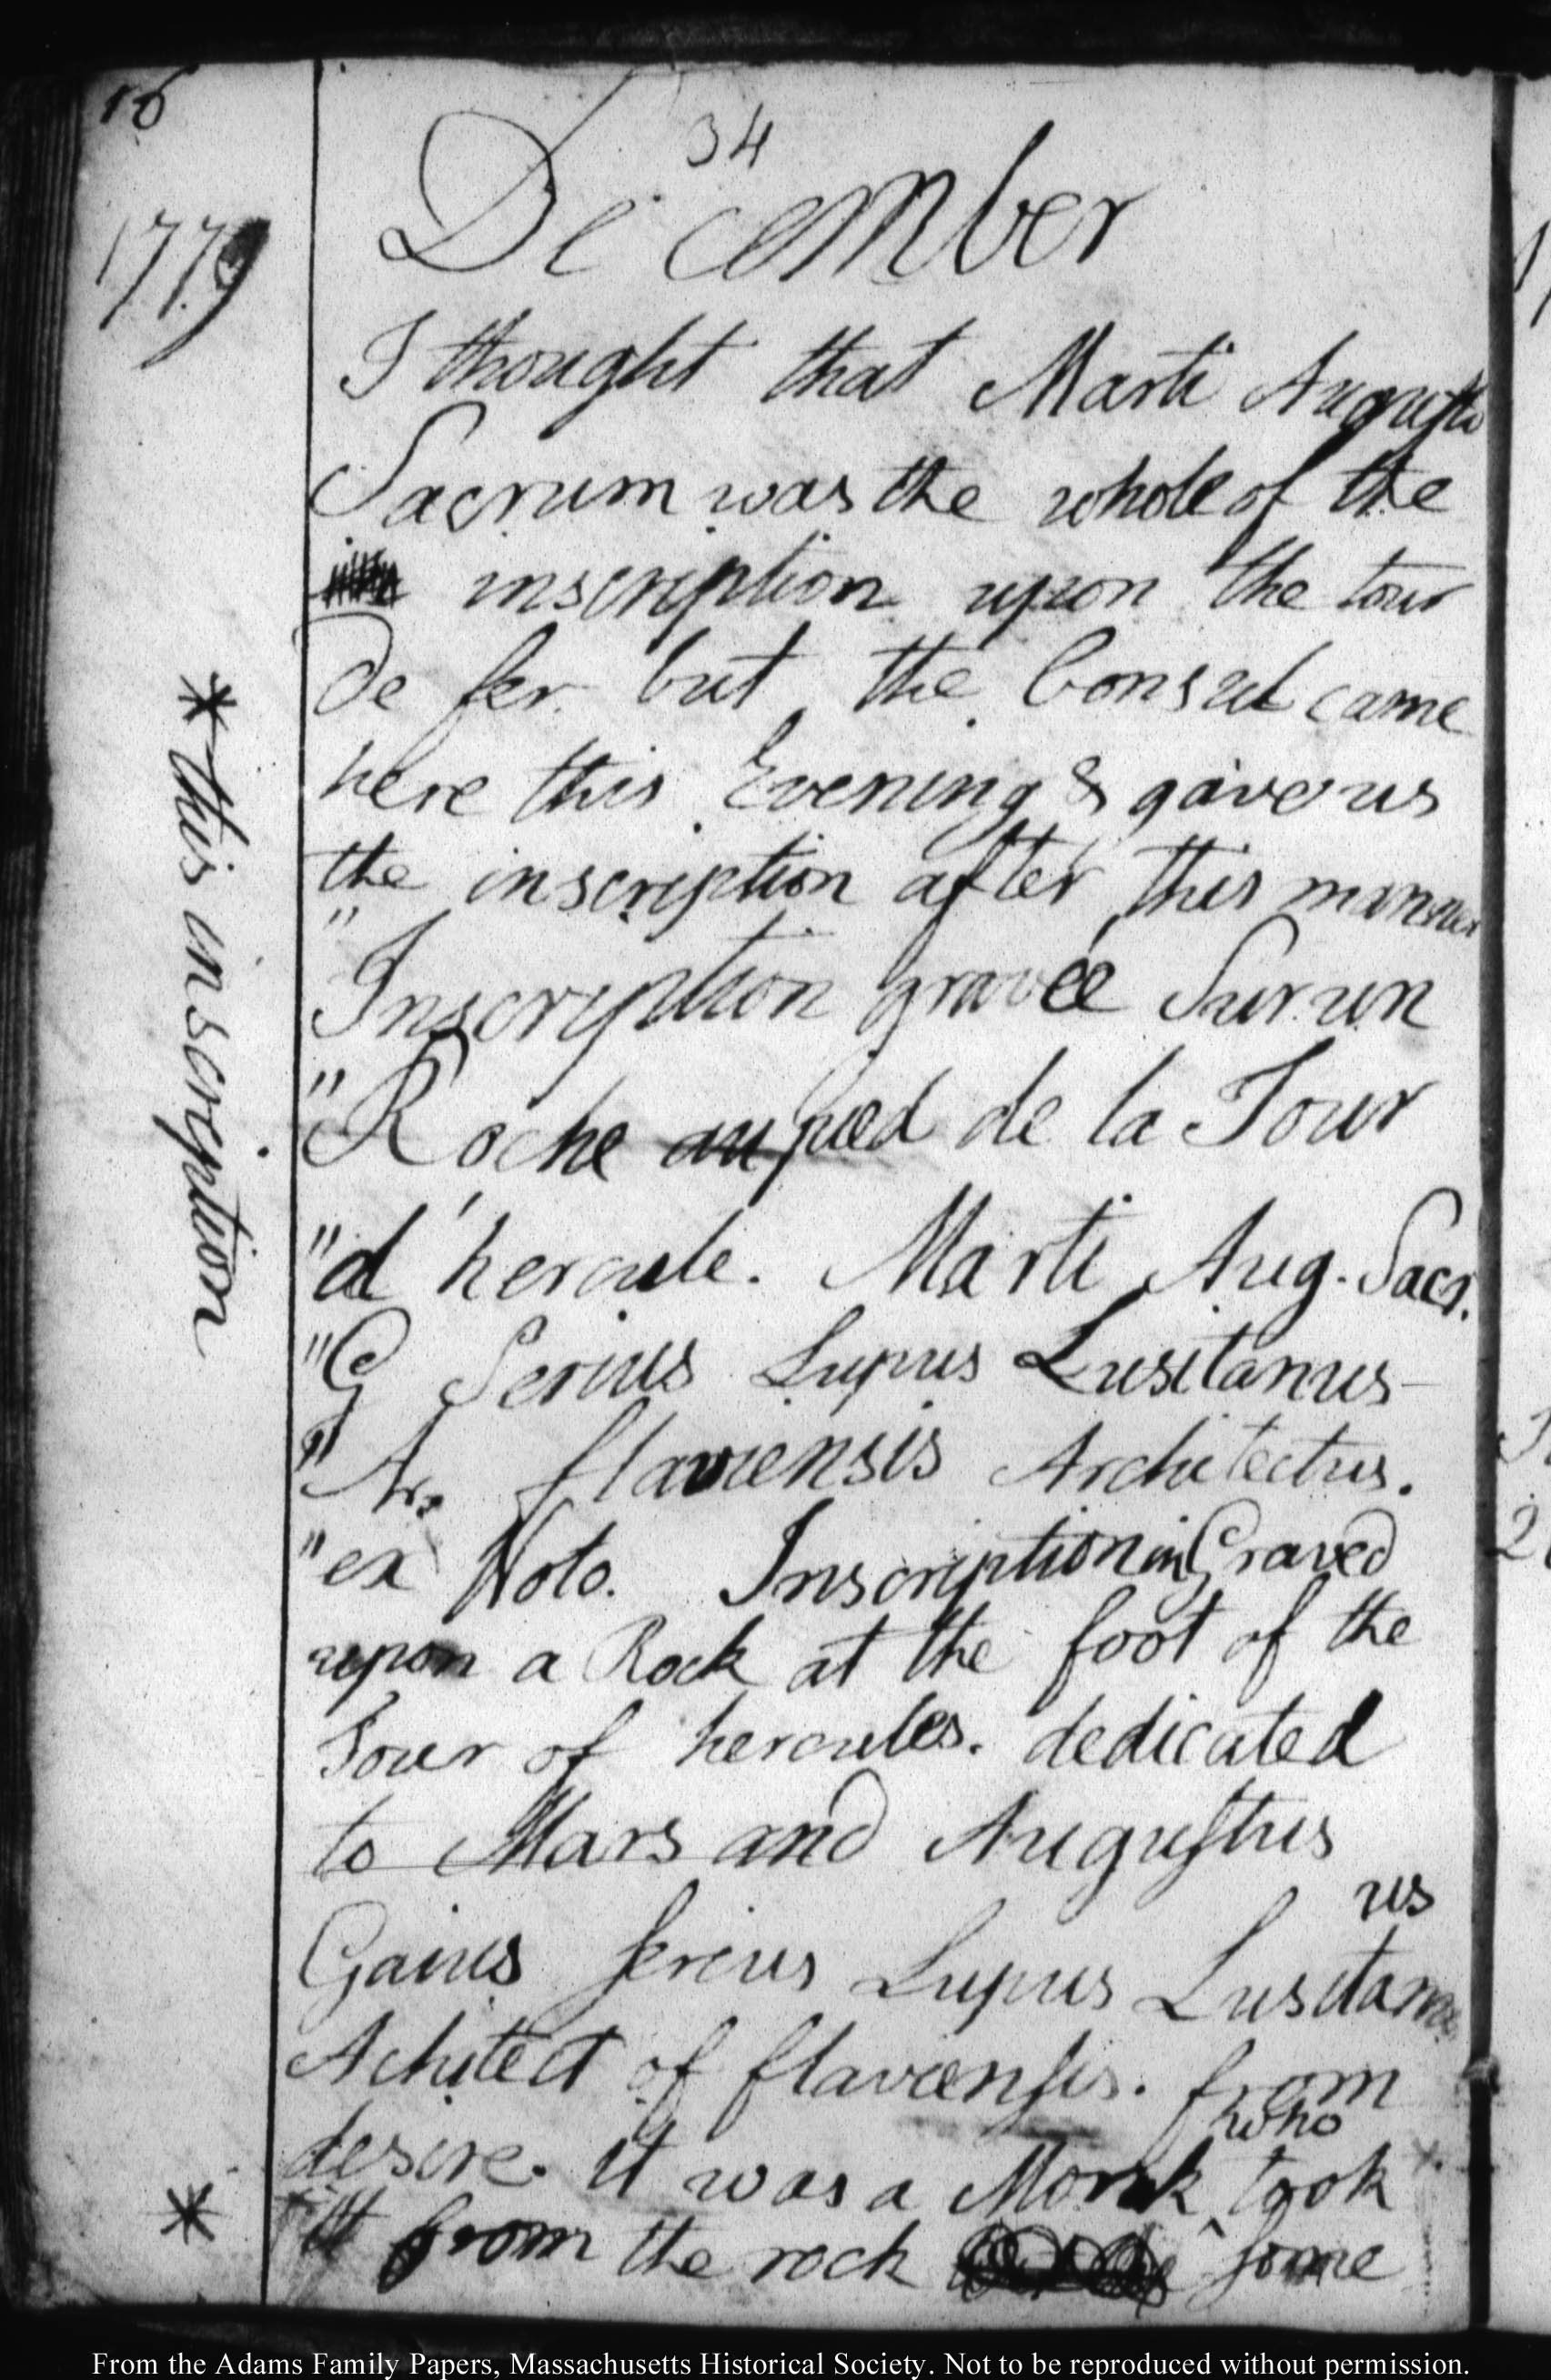 16
34
December
1779
I thought that Marti Augusto
Sacrum was the whole of the
inscription upon the tour
De fer but the Consul came
here this Evening & gave us
the inscription after this manner
"Inscription gravée Sur un
"Roche au pied de la Tour
"d'hercule. Marti Aug. Sacr.
"G Serius Lupus Lusitanus
"Ar. flaviensis Architectus.
"ex Voto. Inscription inGraved
upon a Rock at the foot of the
Tour of hercules. dedicated
to Mars and Augustus
us
Gaius Sereus Lupus Lusitan
Achitect of flaviensis. from
who
desire. it was a Monk took
it from the rock some
*this inscription
*
From the Adams Family Papers, Massachusetts Historical Society. Not to be reproduced without permission.